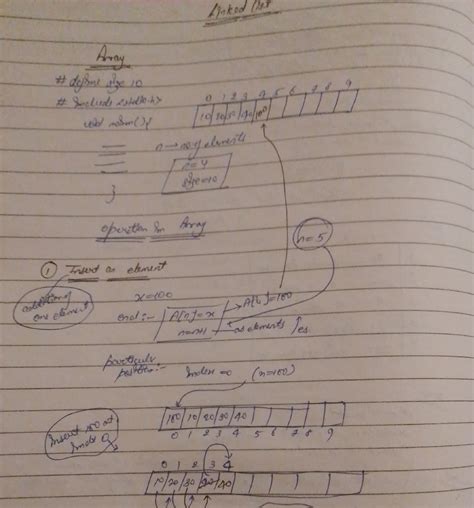 Linked list
Array
# define size 10
# include <stdio.h>
void main(){
}
0 1 2 3 4 5 6 7 8 9
10 20 30 40 100
n → no of elements
n=4
size=10
operation in Array
n=5
① Insert an element
addition of
one element
x=100
end :- A[n]=x → A[4]=100
n=n+1 → as elements ↑es
particular
position:-
Index=0 (x=100)
100 10 20 30 40
0 1 2 3 4 5 6 7 8 9
Insert 100 at
index 0
0 1 2 3 4
10 20 30 40